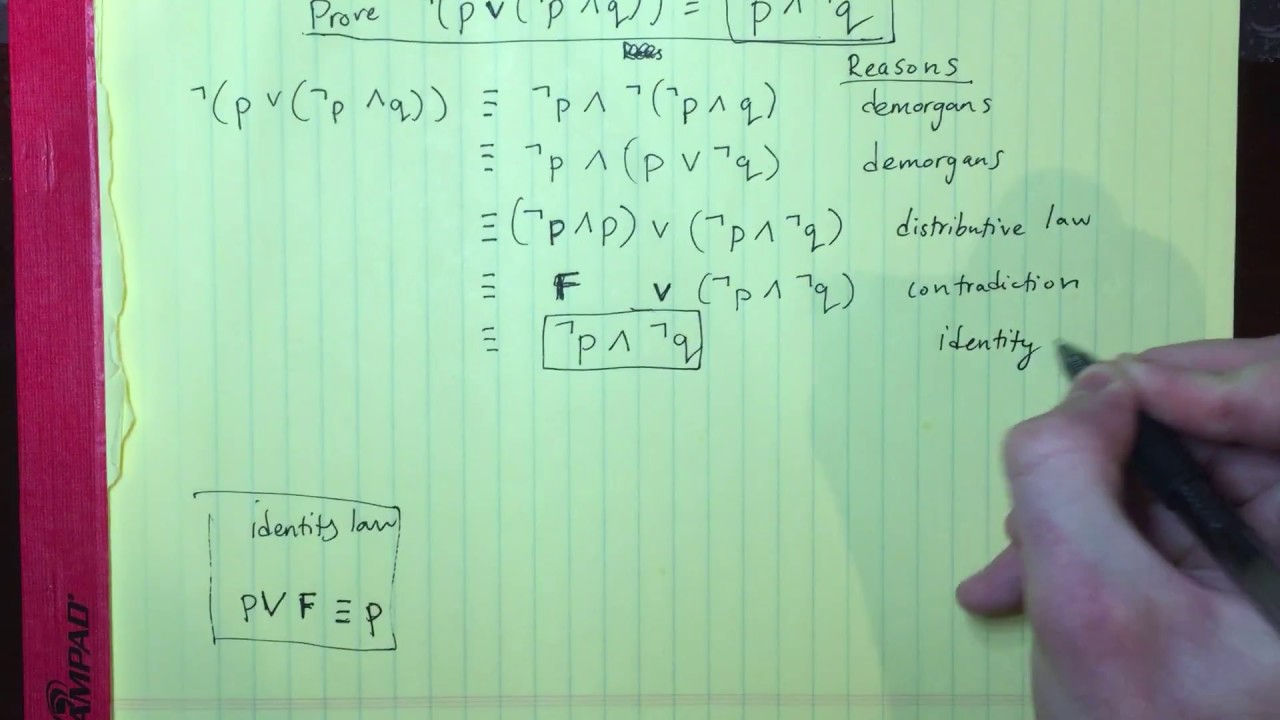 Prove ¬(p ∨ (¬p ∧ q)) ≡ ¬p ∧ ¬q
Reasons
¬(p ∨ (¬p ∧ q)) ≡ ¬p ∧ ¬(¬p ∧ q) demorgans
≡ ¬p ∧ (p ∨ ¬q) demorgans
≡ (¬p ∧ p) ∨ (¬p ∧ ¬q) distributive law
≡ F ∨ (¬p ∧ ¬q) contradiction
≡ ¬p ∧ ¬q identity
identity law
p ∨ F ≡ p
AMPAD